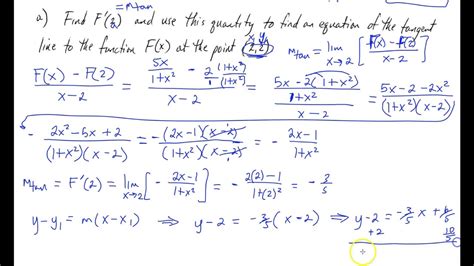 = m tan
a) Find F'(2) and use this quantity to find an equation of the tangent
line to the function F(x) at the point (2,2).
x₁ y₁
m_tan = lim_{x→2} [ (F(x) - F(2)) / (x - 2) ]
(F(x) - F(2)) / (x - 2) = (5x/(1+x²) - 2/1 (1+x²)/(1+x²)) / (x - 2) = ((5x - 2(1+x²)) / (1+x²)) / (x - 2) = (5x - 2 - 2x²) / ((1+x²)(x-2))
- (2x² - 5x + 2) / ((1+x²)(x-2)) = - ((2x-1)(x-2)) / ((1+x²)(x-2)) = - (2x-1) / (1+x²)
m_tan = F'(2) = lim_{x→2} [ - (2x-1) / (1+x²) ] = - (2(2)-1) / (1+(2)²) = - 3/5
y-y₁ = m(x-x₁) ⇒ y-2 = -3/5 (x-2) ⇒ y-2 = -3/5 x + 6/5
+2 10/5